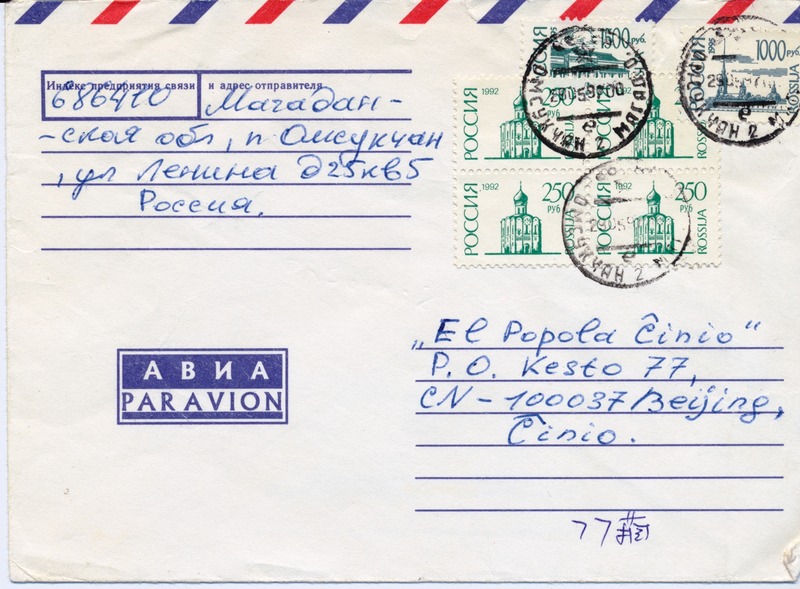 РОССИЯ 1995 1500 руб.
РОССИЯ 1995 1000 руб. ROSSIJA
Индекс предприятия связи и адрес отправителя
686410 Магадан-
-ская обл, п Омсукчан
, ул Ленина д25кв5
Россия.
РОССИЯ 1992 250 руб
250 ROSSIJA
РОССИЯ 1992 250 руб ROSSIJA
РОССИЯ 1992 250 руб ROSSIJA
АВИА
PAR AVION
„El Popola Ĉinio"
P. O. Kesto 77,
CN-100037 Beijing,
Ĉinio.
77